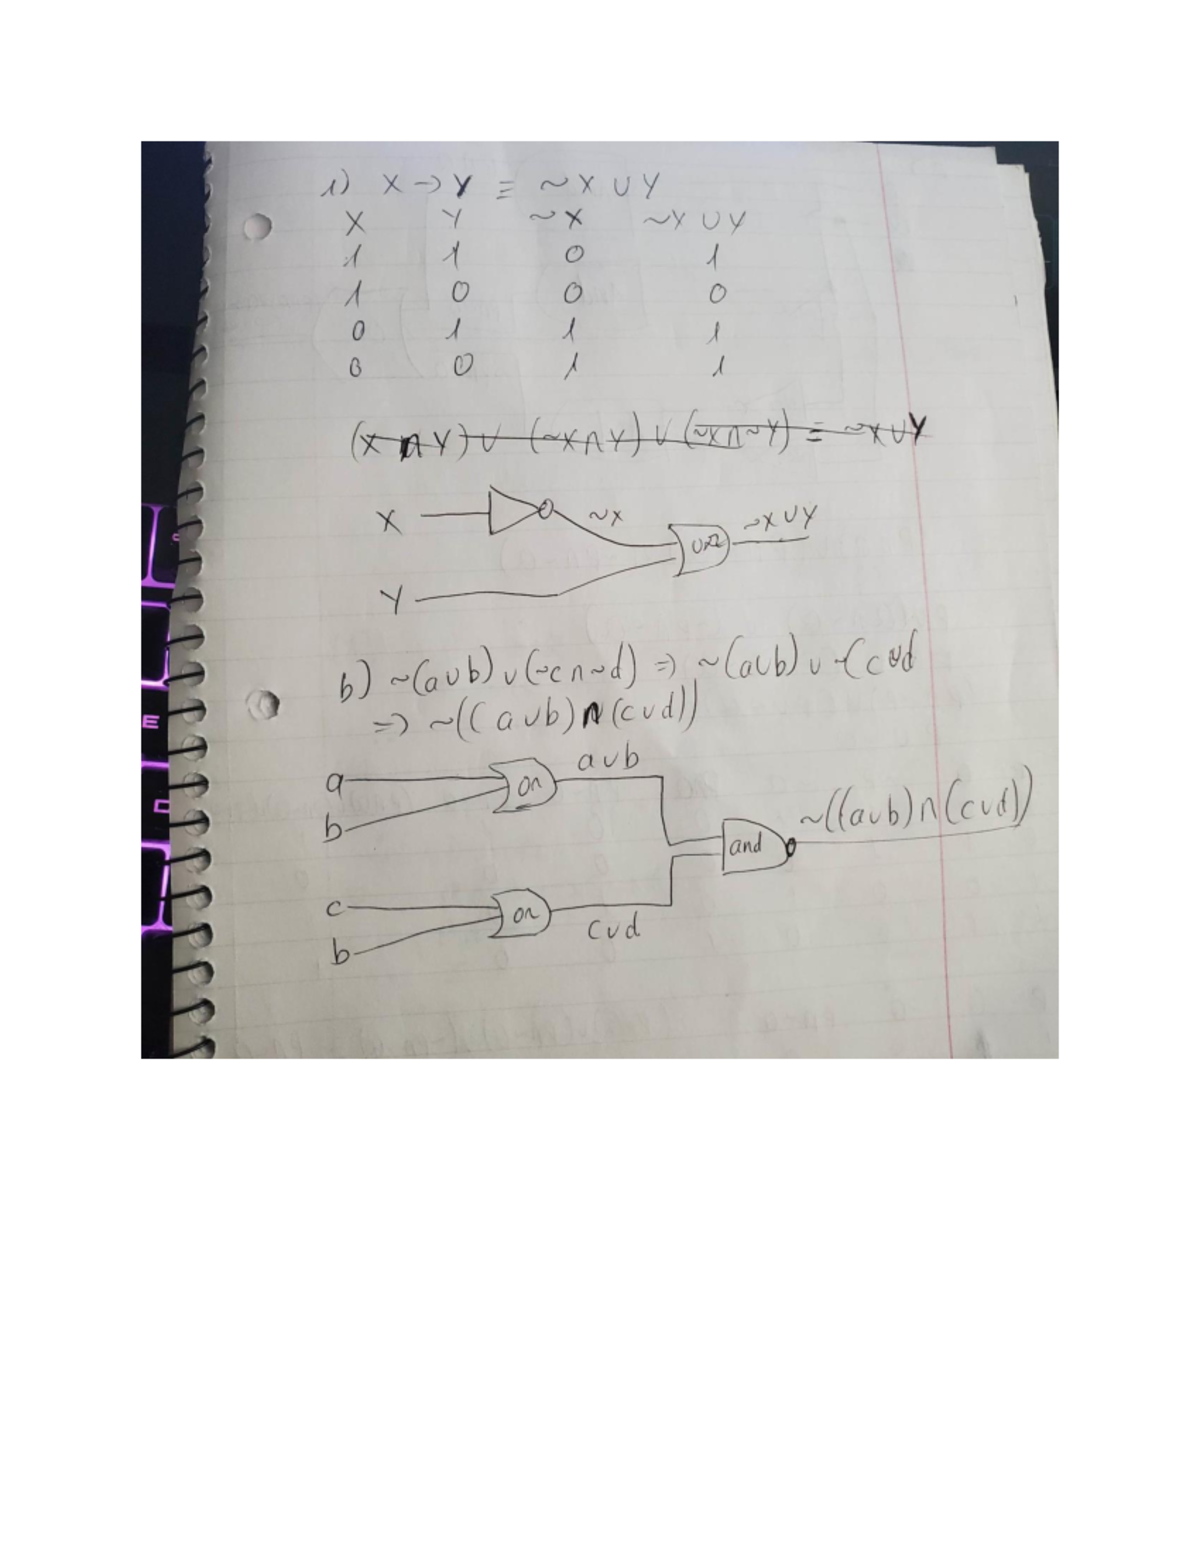 1) X → Y ≡ ~X ∪ Y
X Y ~X ~Y ∪ Y
1 1 0 1
1 0 0 0
0 1 1 1
0 0 1 1
(X ∩ Y) ∪ (~X ∩ Y) ∪ (~X ∩ ~Y) ≡ ~X ∪ Y
X ~X ~X ∪ Y
Y
b) ~(a ∪ b) ∪ (~c ∩ ~d) => ~(a ∪ b) ∪ ~(c ∪ d
=> ~((a ∪ b) ∩ (c ∪ d))
a ∪ b
a or
b
and ~((a ∪ b) ∩ (c ∪ d))
c or
b c ∪ d
E